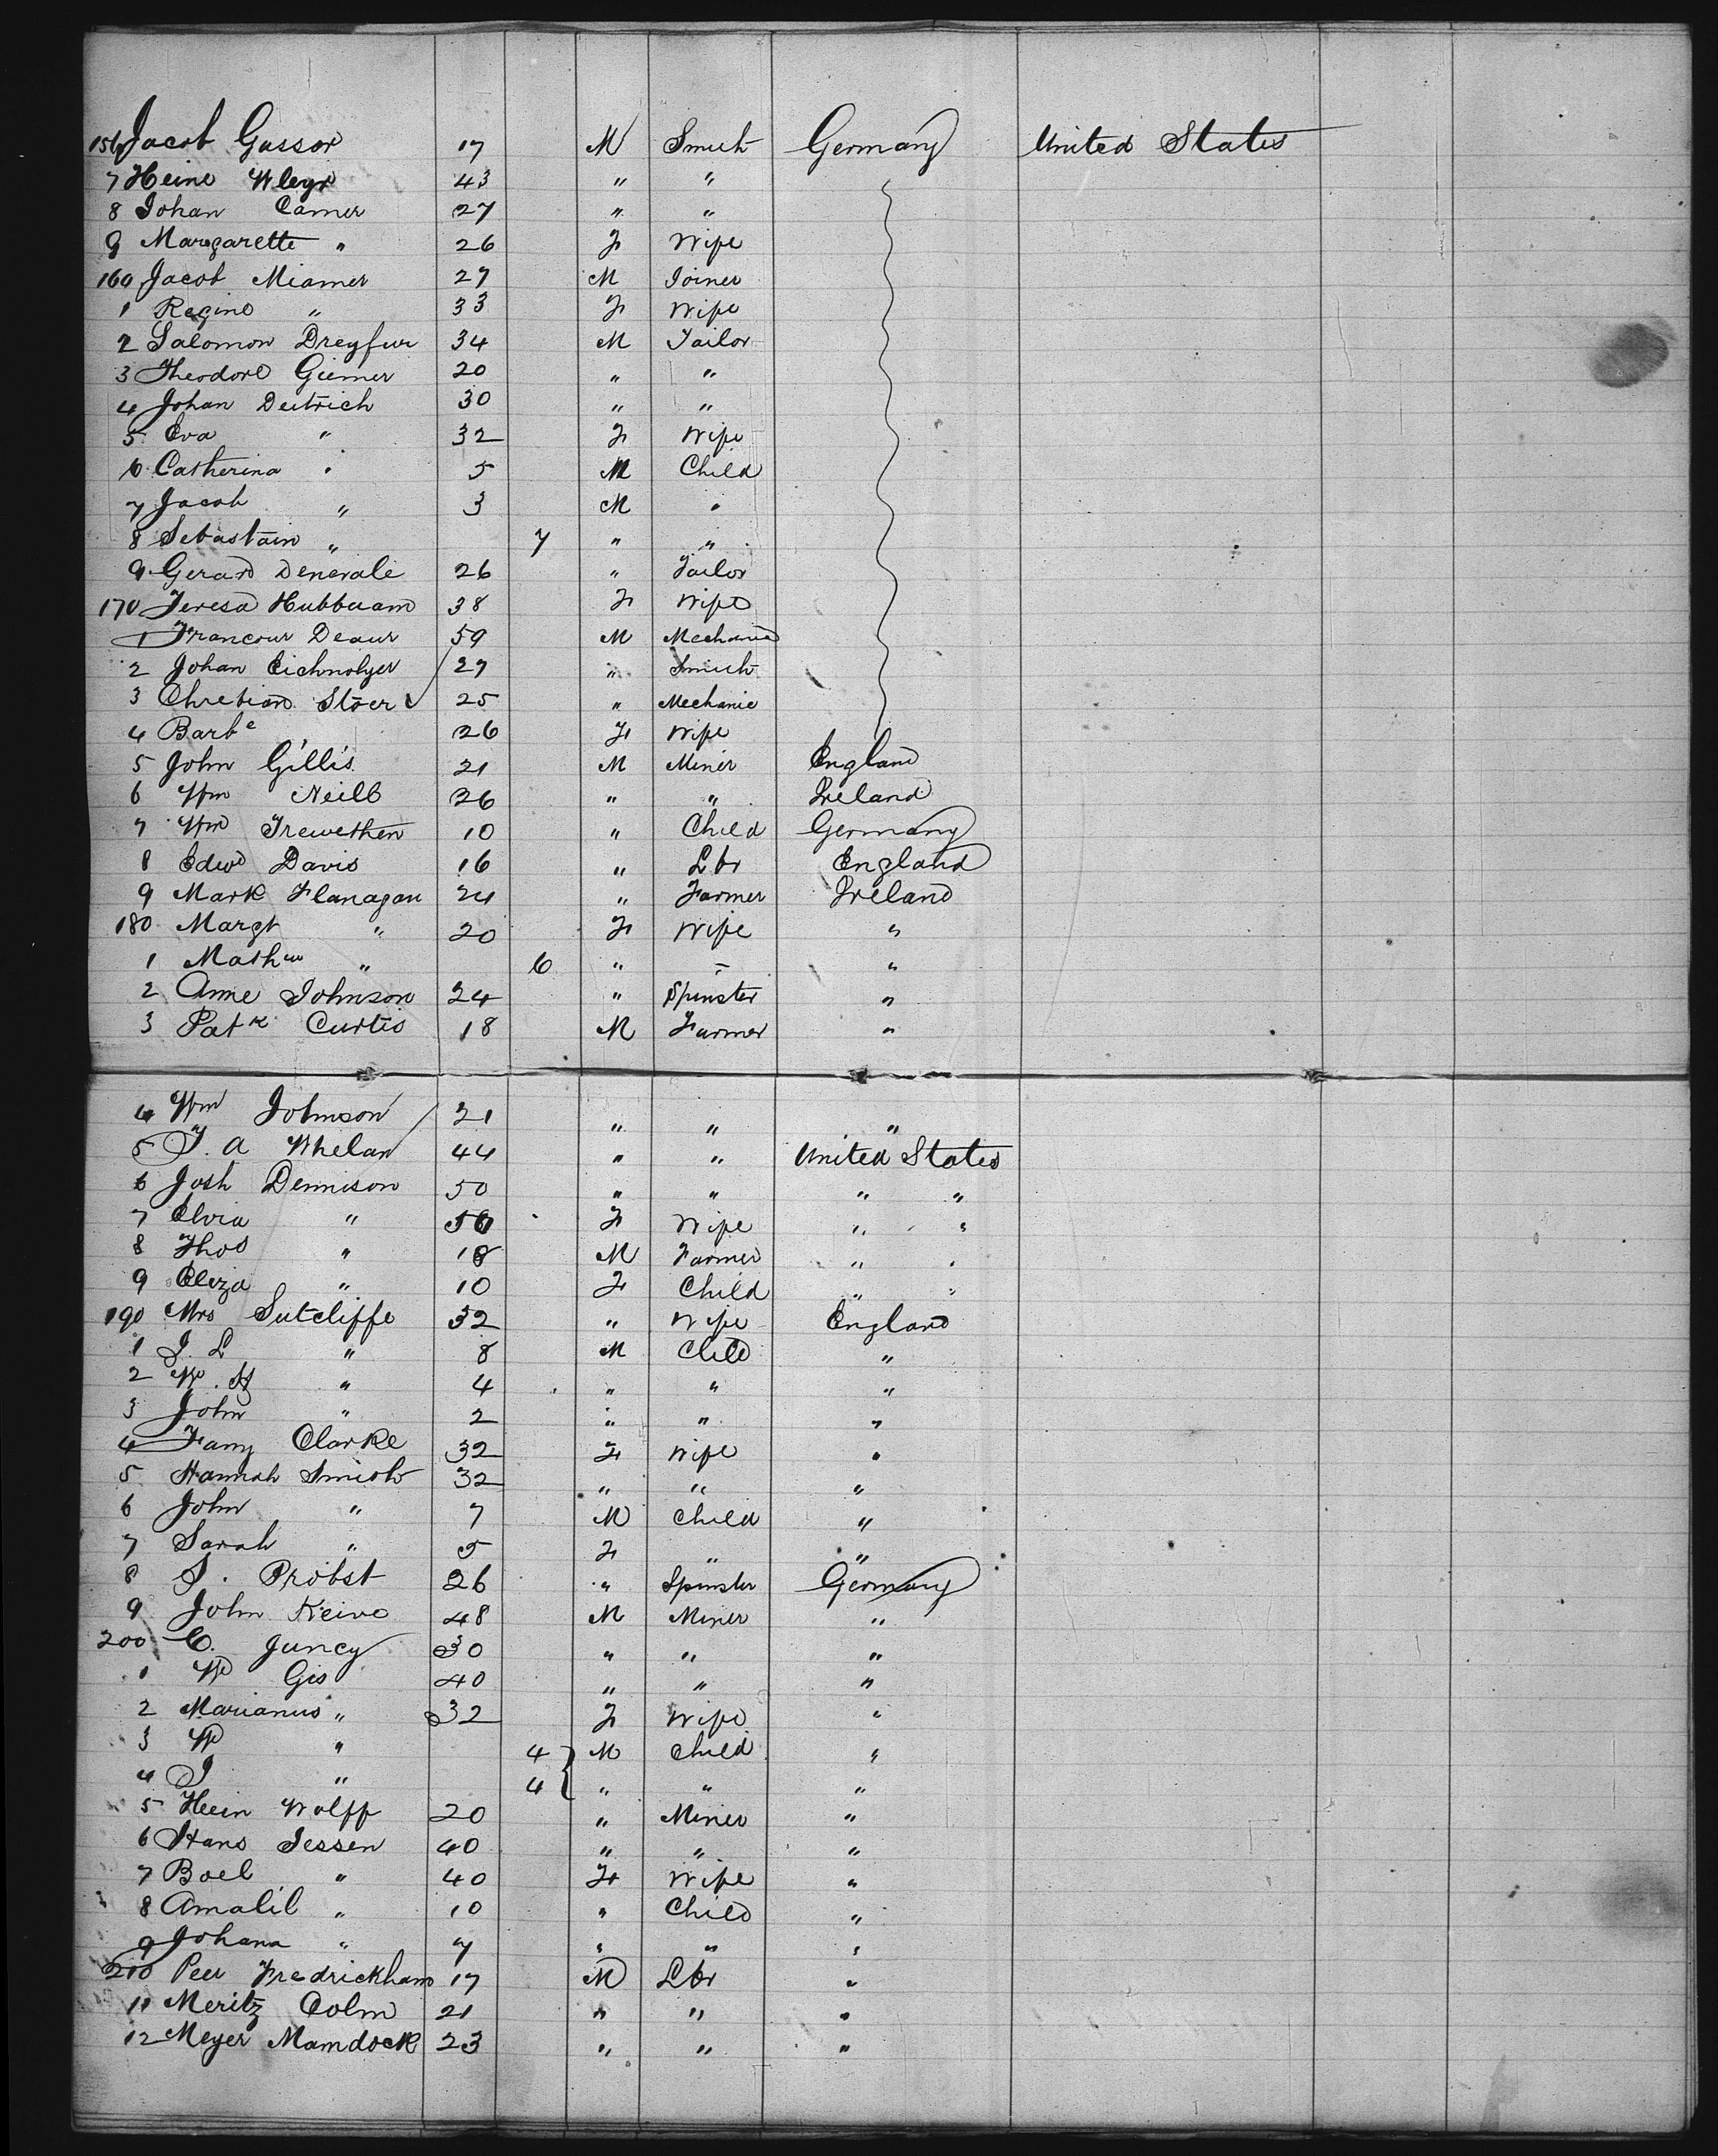 156 Jacob Gassor 17 M Smith Germany United States
7 Heine Wleyr 43 " "
8 Johan Camer 27 " "
9 Margarette " 26 F Wife
160 Jacob Miamer 27 M Joiner
1 Regine " 33 F Wife
2 Salomon Dreyfur 34 M Tailor
3 Theodore Giemer 20 " "
4 Johan Deitrich 30 " "
5 Eva " 32 F Wife
6 Catherina " 5 M Child
7 Jacob " 3 M "
8 Sebastain " 7 " "
9 Gerard Denevale 26 " Tailor
170 Teresa Hubbuam 38 F Wife
1 Francour Deaur 59 M Mechanic
2 Johan Eichnolyer 27 " Smith
3 Chretian Stoer 25 " Mechanic
4 Barbe " 26 F Wife
5 John Gillis 21 M Miner England
6 Wm Neill 26 " " Ireland
7 Wm Trewethen 10 " Child Germany
8 Edwd Davis 16 " Lbr England
9 Mark Flanagan 24 " Farmer Ireland
180 Margt " 20 F Wife "
1 Mathw " 6 " – "
2 Anne Johnson 24 " Spinster "
3 Patk Curtis 18 M Farmer "
4 Wm Johnson 21 " " "
5 T. A Whelan 44 " " United States
6 Josh Dennison 50 " " " "
7 Elvia " 50 F Wife " "
8 Thos " 18 M Farmer " "
9 Eliza " 10 F Child " "
190 Mrs Sutcliffe 32 " Wife England
1 J. L " 8 M Child "
2 W. H " 4 " " "
3 John " 2 " " "
4 Fany Clarke 32 F Wife "
5 Hannah Smith 32 " " "
6 John " 7 M Child "
7 Sarah " 5 F " "
8 S. Probst 26 " Spinster Germany
9 John Keive 48 M Miner "
200 C. Juncy 30 " " "
1 W Gis 40 " " "
2 Marianus " 32 F Wife "
3 W " 4 M Child "
4 J " 4 " " "
5 Hein Wolff 20 " Miner "
6 Hans Jessen 40 " " "
7 Boel " 40 F Wife "
8 Amalil " 10 " Child "
9 Johana " 7 " " "
210 Peer Fredrickham 17 M Lbr "
11 Meritz Colm 21 " " "
12 Meyer Mamdock 23 " " "